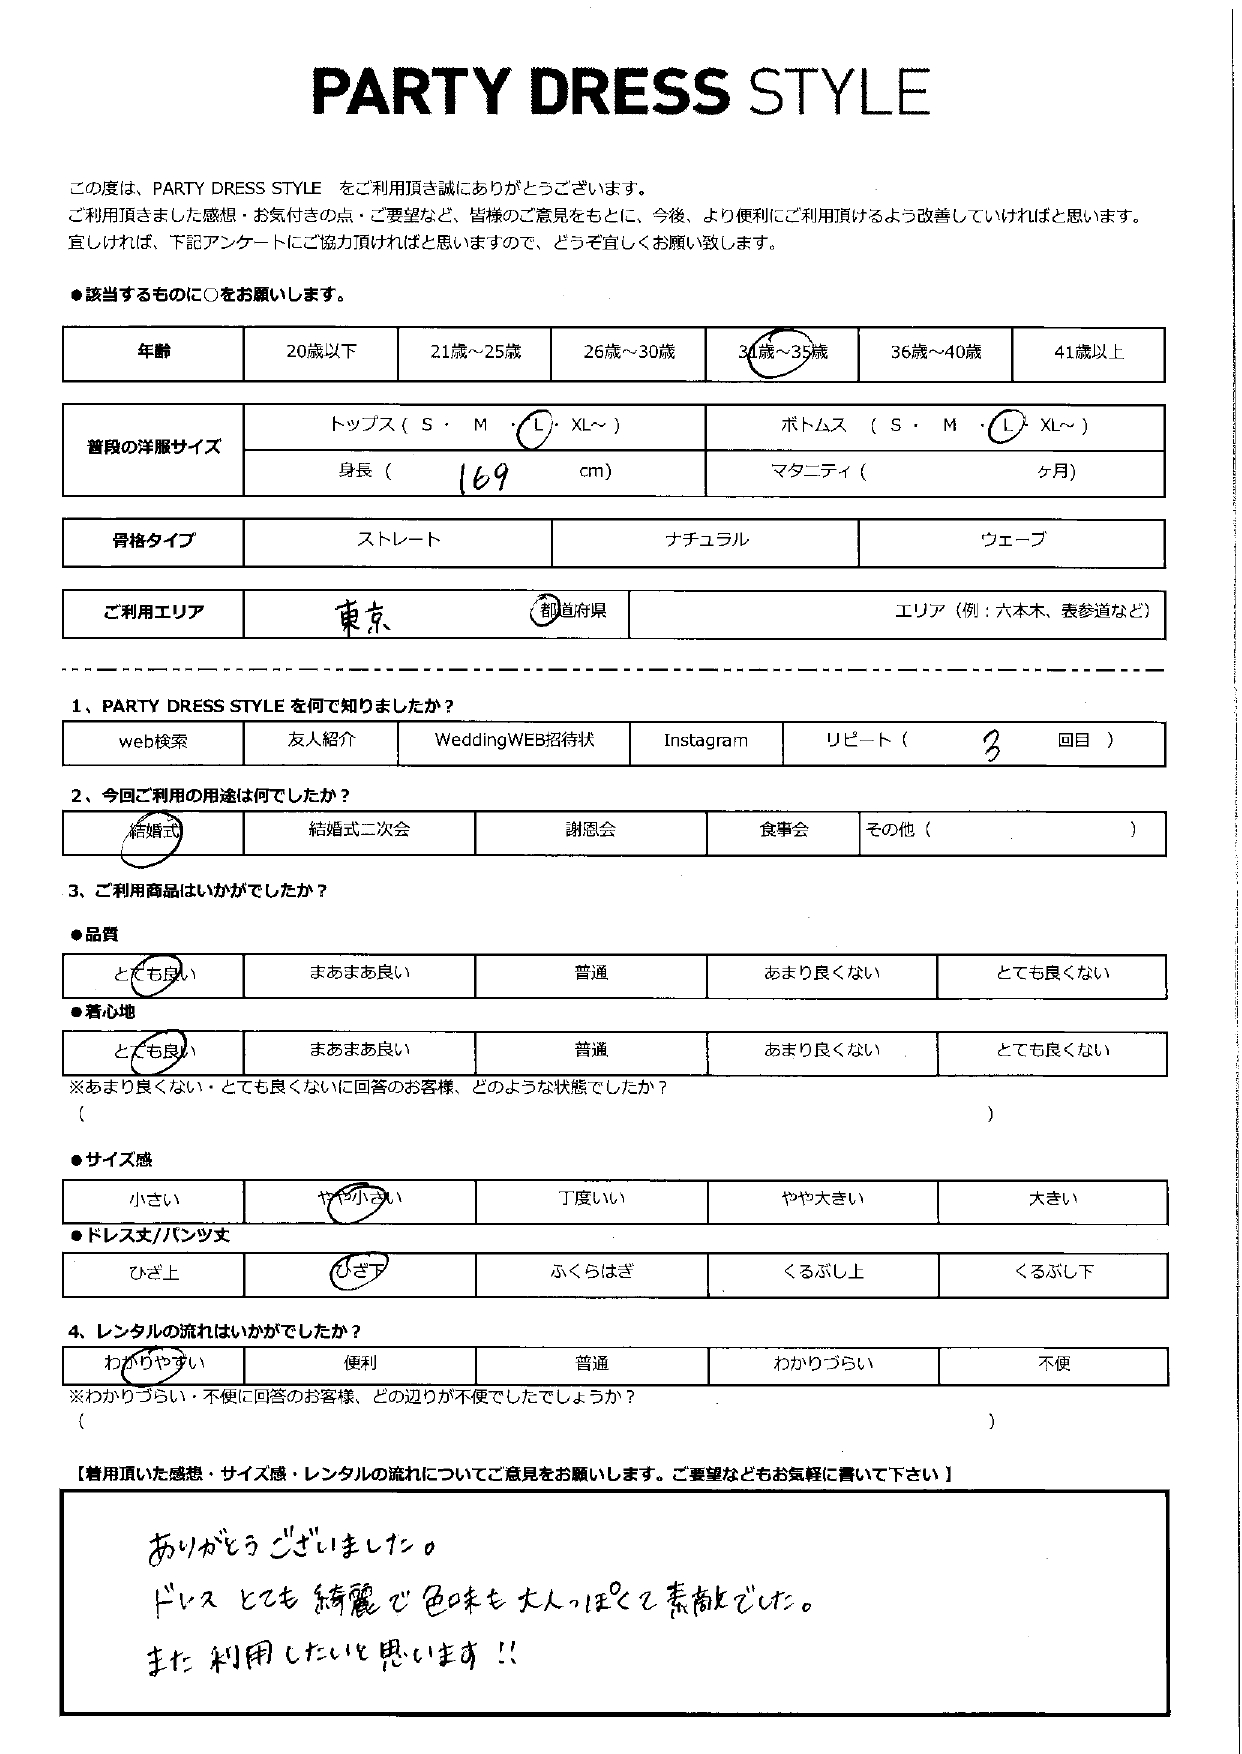 PARTY DRESS STYLE
この度は、PARTY DRESS STYLE　をご利用頂き誠にありがとうございます。
ご利用頂きました感想・お気付きの点・ご要望など、皆様のご意見をもとに、今後、より便利にご利用頂けるよう改善していければと思います。
宜しければ、下記アンケートにご協力頂ければと思いますので、どうぞ宜しくお願い致します。
●該当するものに○をお願いします。
年齢 20歳以下 21歳～25歳 26歳～30歳 31歳～35歳 36歳～40歳 41歳以上
普段の洋服サイズ トップス ( S ・ M ・ L ・ XL～ ) ボトムス ( S ・ M ・ L ・ XL～ )
身長 ( 169 cm) マタニティ ( ヶ月)
骨格タイプ ストレート ナチュラル ウェーブ
ご利用エリア 東京 都道府県 エリア（例：六本木、表参道など）
1、PARTY DRESS STYLE を何で知りましたか？
web検索 友人紹介 WeddingWEB招待状 Instagram リピート（ 3 回目 ）
2、今回ご利用の用途は何でしたか？
結婚式 結婚式二次会 謝恩会 食事会 その他（ ）
3、ご利用商品はいかがでしたか？
●品質
とても良い まあまあ良い 普通 あまり良くない とても良くない
●着心地
とても良い まあまあ良い 普通 あまり良くない とても良くない
※あまり良くない・とても良くないに回答のお客様、どのような状態でしたか？
（ ）
●サイズ感
小さい やや小さい 丁度いい やや大きい 大きい
●ドレス丈/パンツ丈
ひざ上 ひざ下 ふくらはぎ くるぶし上 くるぶし下
4、レンタルの流れはいかがでしたか？
わかりやすい 便利 普通 わかりづらい 不便
※わかりづらい・不便に回答のお客様、どの辺りが不便でしたでしょうか？
（ ）
【着用頂いた感想・サイズ感・レンタルの流れについてご意見をお願いします。ご要望などもお気軽に書いて下さい 】
ありがとうございました。
ドレス とても 綺麗で 色味も 大人っぽくて 素敵でした。
また 利用したいと思います!!